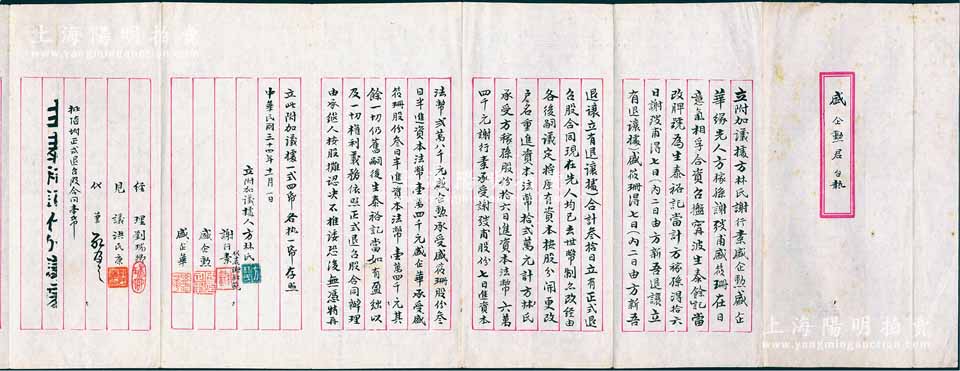 盛企勲君台執
立附加議據方林氏謝行業盛企勲盛企
華緣先人方稼孫謝弢甫盛筱珊在日
意氣相孚合資召盤寧波生泰餘記當
改牌號為生泰裕記當計方稼孫得拾六
日謝弢甫得七日(內二日由方新吾退讓立
有退讓據)盛筱珊得七日(內二日由方新吾
退讓立有退讓據)合計叁拾日立有正式退
召股合同現在先人均已去世幣制亦改經由
各後嗣議定將原有資本按股分開更改
戶名重進資本法幣拾弍萬元計方林氏
承受方稼孫股份拾六日進資本法幣六萬
四千元謝行業承受謝弢甫股份七日進資本
法幣弍萬八千元盛企勲承受盛筱珊股份叁
日半進資本法幣壹萬四千元盛企華承受盛
筱珊股份叁日半進資本法幣壹萬四千元其
餘一切仍舊嗣後生泰裕記當如有盈蝕以
及一切權利義務依照正式退召股合同辦理
由承繼人按股攤認決不推諉恐後無憑特再
立此附加議據式四帋各執一帋存照
中華民國三十四年十一月一日
立附加議據人方林氏
謝行業
盛企勲
盛企華
經理劉瑞
見議洪氏康
代筆
粘佰圳正式退召股合同壹帋
上海陽明拍賣
www.yangmingauction.com
上海陽明拍賣
www.yangmingauction.com